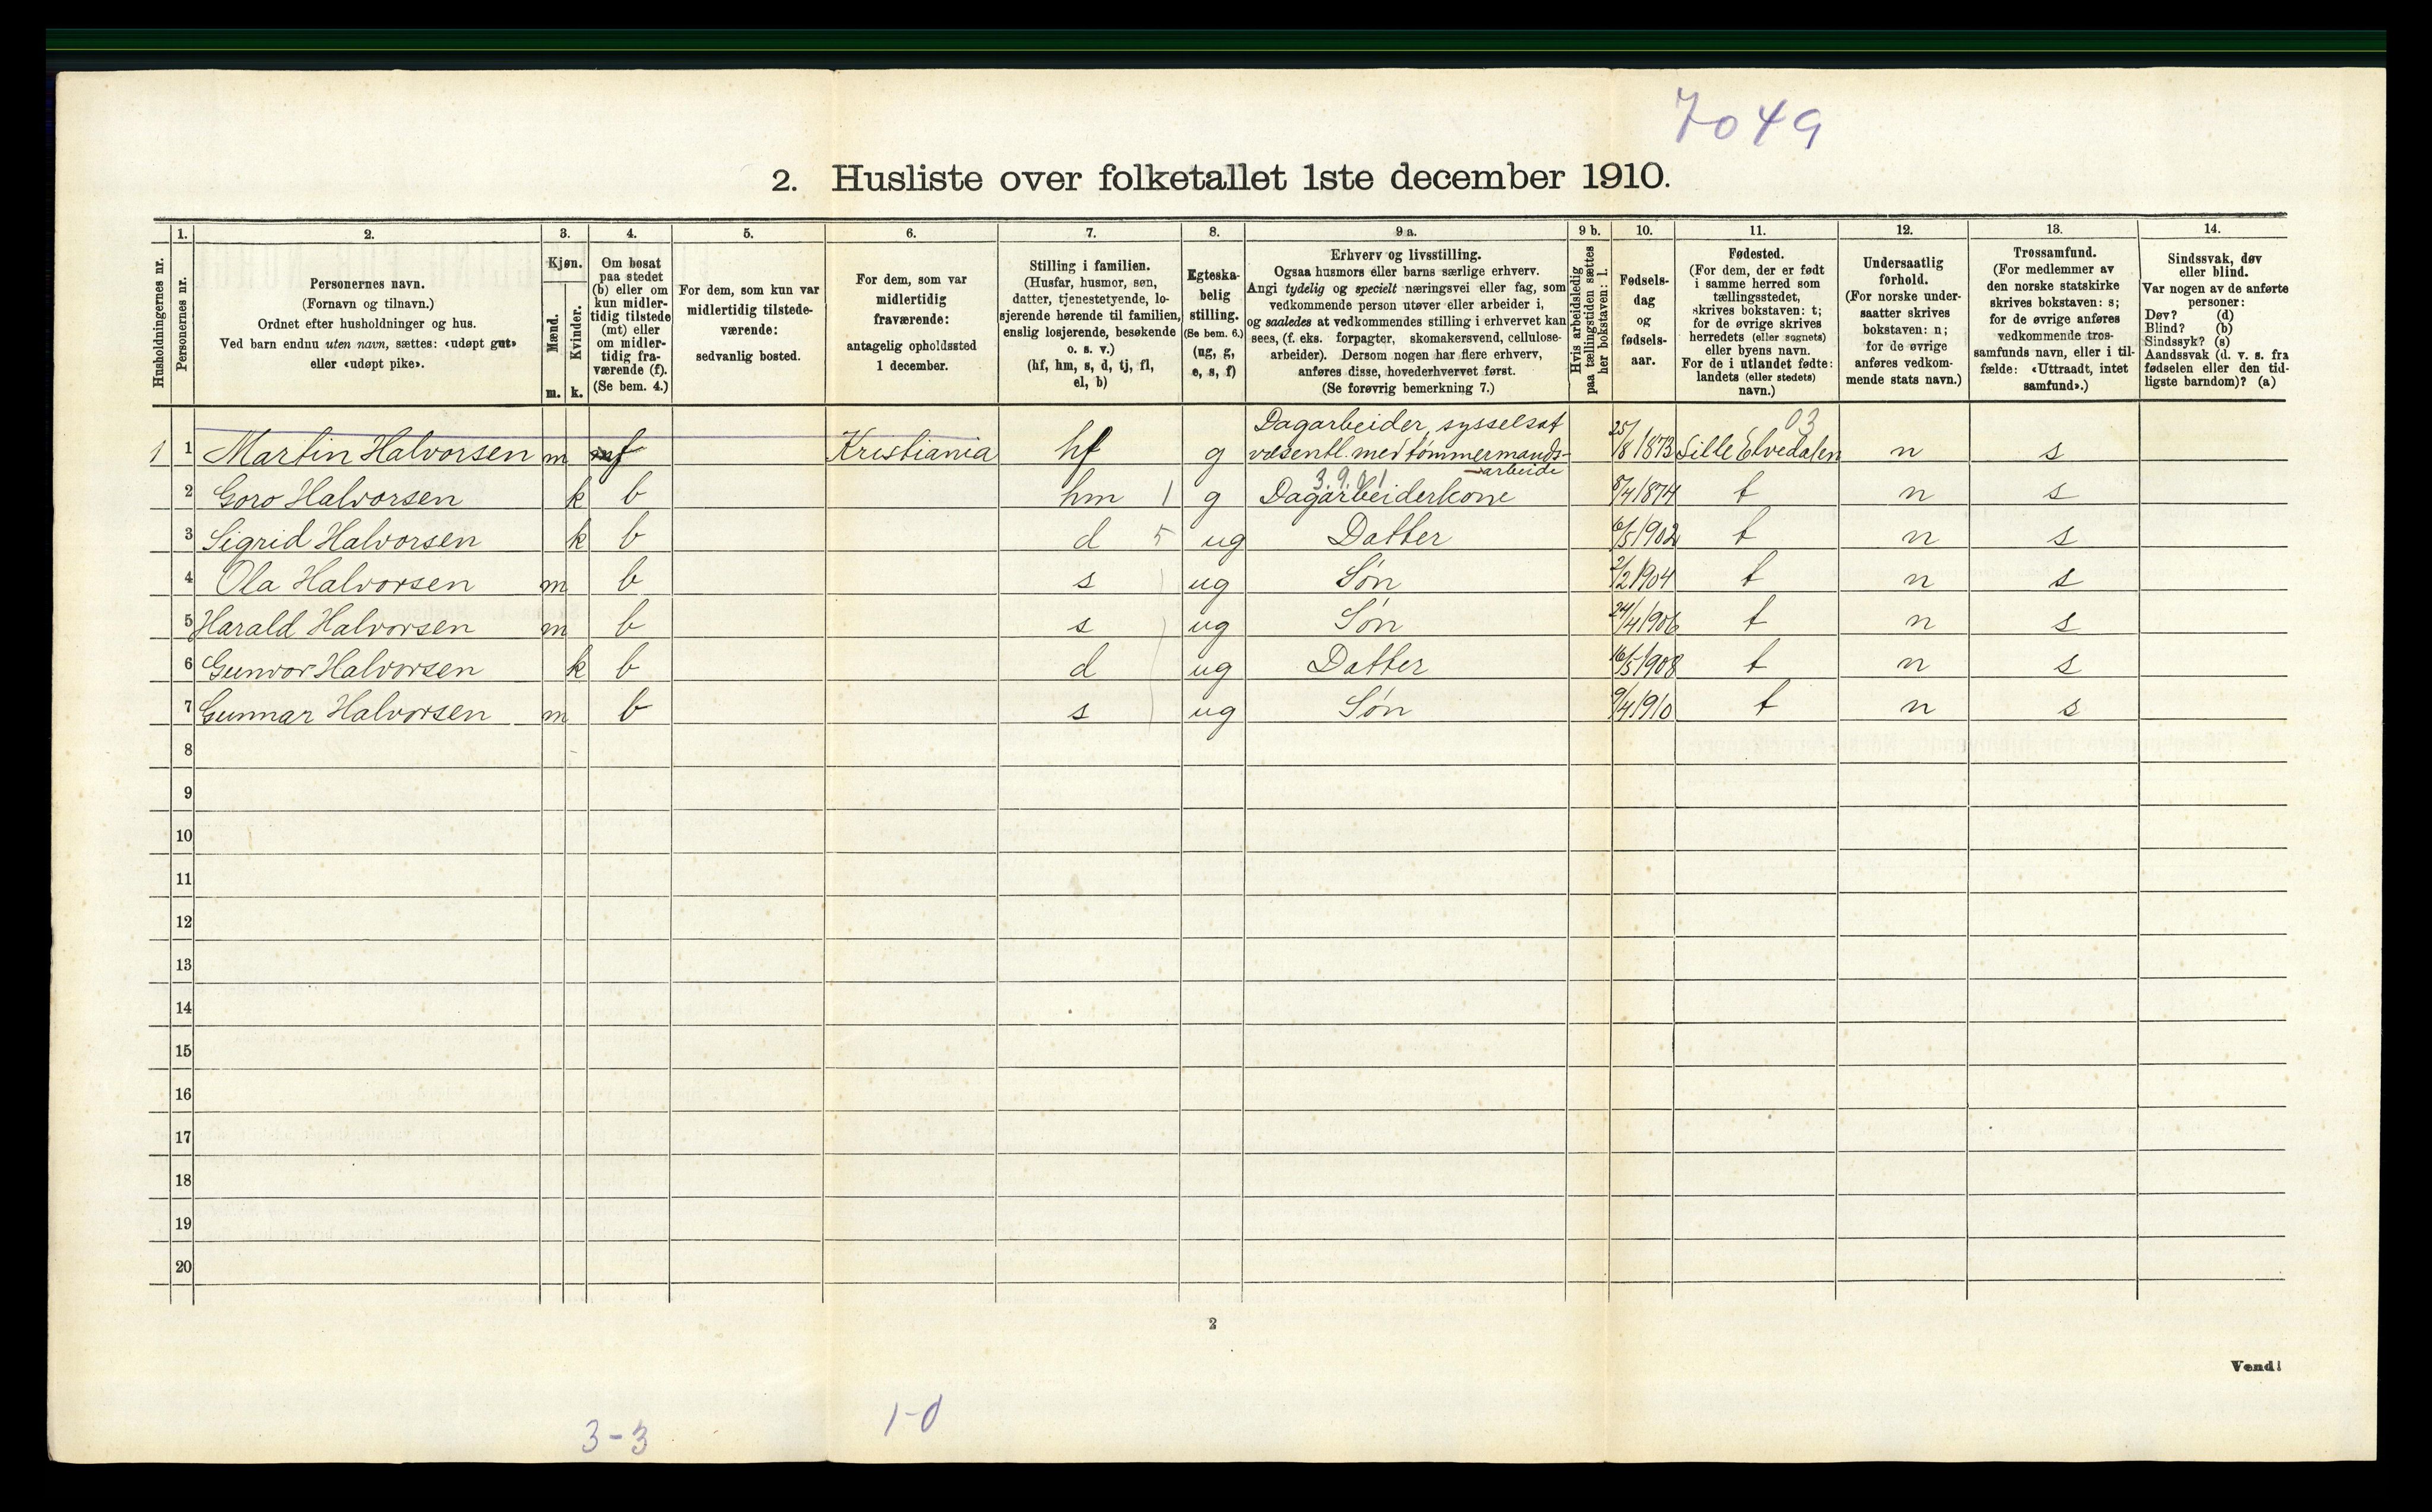 7049
2. Husliste over folketallet 1ste december 1910.
Husholdningernes nr.
1.
Personernes nr.
2.
Personernes navn.
(Fornavn og tilnavn.)
Ordnet efter husholdninger og hus.
Ved barn endnu uten navn, sættes: «udøpt gut»
eller «udøpt pike».
3.
Kjøn.
Mænd.
Kvinder.
m. k.
4.
Om bosat
paa stedet
(b) eller om
kun midler-
tidig tilstede
(mt) eller
om midler-
tidig fra-
værende (f).
(Se bem. 4.)
5.
For dem, som kun var
midlertidig tilstede-
værende:
sedvanlig bosted.
6.
For dem, som var
midlertidig
fraværende:
antagelig opholdssted
1 december.
7.
Stilling i familien.
(Husfar, husmor, søn,
datter, tjenestetyende, lo-
sjerende hørende til familien,
enslig losjerende, besøkende
o. s. v.)
(hf, hm, s, d, tj, fl,
el, b)
8.
Egteska-
belig
stilling.
(Se bem. 6.)
(ug, g,
e, s, f)
9 a.
Erhverv og livsstilling.
Ogsaa husmors eller barns særlige erhverv.
Angi tydelig og specielt næringsvei eller fag, som
vedkommende person utøver eller arbeider i,
og saaledes at vedkommendes stilling i erhvervet kan
sees, (f. eks. forpagter, skomakersvend, cellulose-
arbeider). Dersom nogen har flere erhverv,
anføres disse, hovederhvervet først.
(Se forøvrig bemerkning 7.)
9 b.
Hvis arbeidsledig
paa tællingstiden sættes
her bokstaven: l.
10.
Fødsels-
dag
og
fødsels-
aar.
11.
Fødested.
(For dem, der er født
i samme herred som
tællingsstedet,
skrives bokstaven: t;
for de øvrige skrives
herredets (eller sognets)
eller byens navn.
For de i utlandet fødte:
landets (eller stedets)
navn.)
12.
Undersaatlig
forhold.
(For norske under-
saatter skrives
bokstaven: n;
for de øvrige
anføres vedkom-
mende stats navn.)
13.
Trossamfund.
(For medlemmer av
den norske statskirke
skrives bokstaven: s;
for de øvrige anføres
vedkommende tros-
samfunds navn, eller i til-
fælde: «Uttraadt, intet
samfund».)
14.
Sindssvak, døv
eller blind.
Var nogen av de anførte
personer:
Døv? (d)
Blind? (b)
Sindssyk? (s)
Aandssvak (d. v. s. fra
fødselen eller den tid-
ligste barndom)? (a)
Dagarbeider, sysselsat 03
1 1 Martin Halvorsen m f Kristiania hf g væsentl. med tømmermands- 25/8 1873 Lille Elvedalen n s
arbeide
3.9.
2 Goro Halvorsen k b hm 1 g Dagarbeiderkone 8/4 1874 t n s
3 Sigrid Halvorsen k b d 5 ug Datter 6/5 1902 t n s
4 Ola Halvorsen m b s ug Søn 2/2 1904 t n s
5 Harald Halvorsen m b s ug Søn 24/4 1906 t n s
6 Gunvor Halvorsen k b d ug Datter 16/5 1908 t n s
7 Gunnar Halvorsen m b s ug Søn 9/4 1910 t n s
8
9
10
11
12
13
14
15
16
17
18
19
20
2
Vend!
3-3
1-0